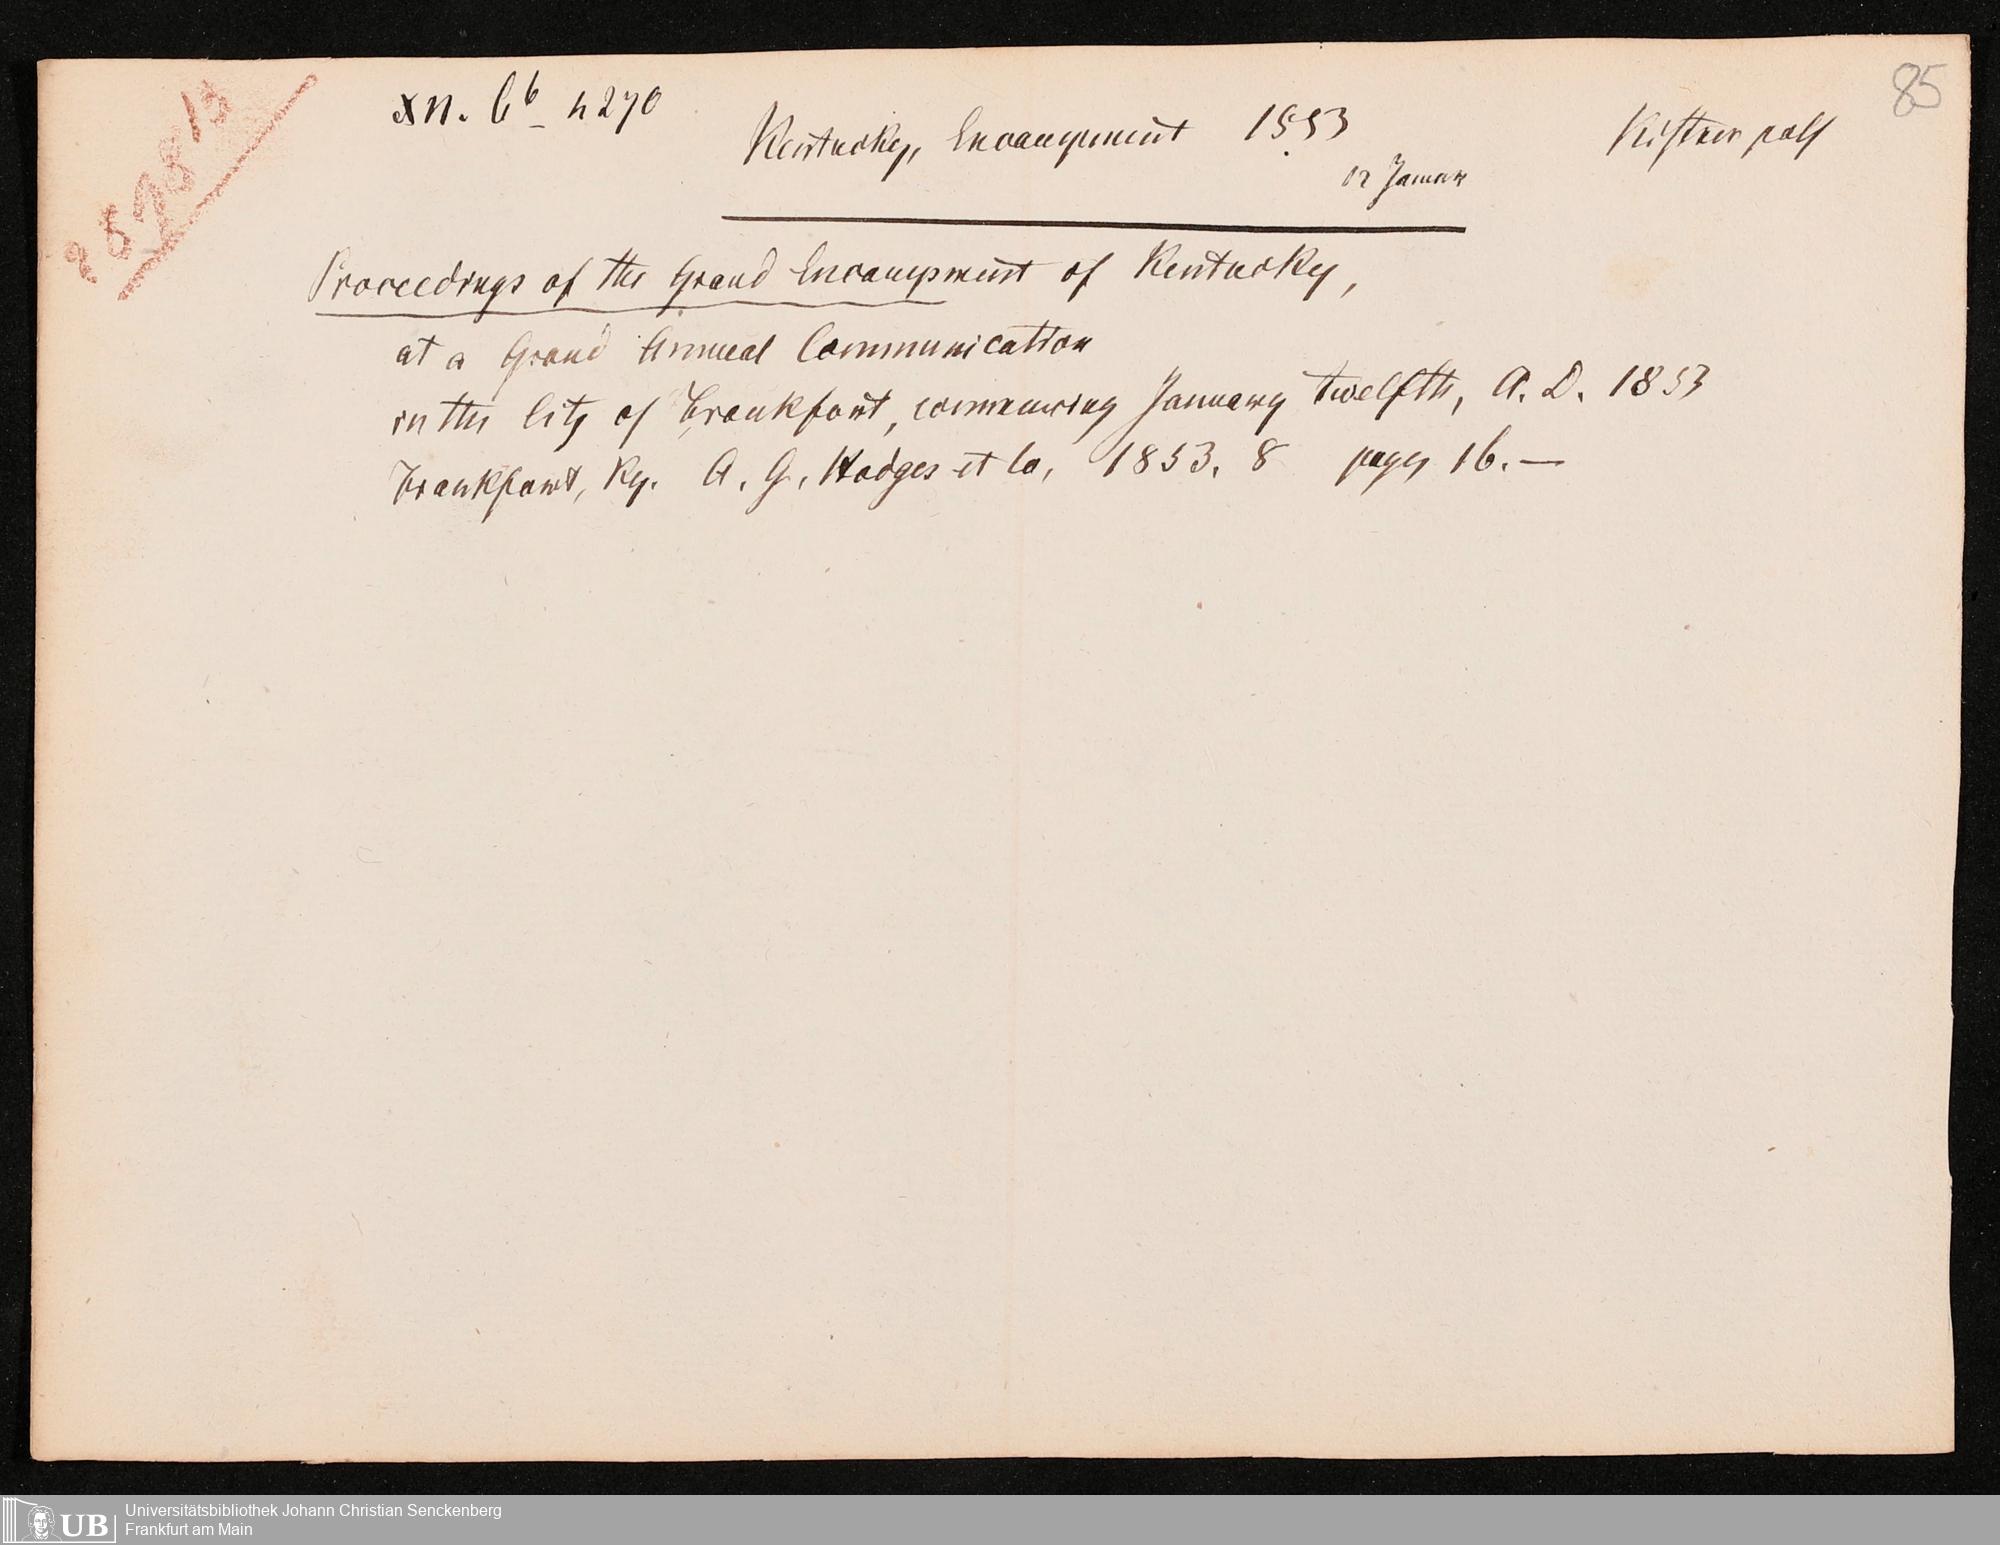 85
XN. Cb - n 270
Kentucky, Encampment 1853
12 Januar
Proceedings of the Grand Encampment of Kentucky,
at a Grand Annual Communication
in the City of Frankfort, commencing January twelfth, A. D. 1853
Frankfort, Ky. A. G. Hodges et Co, 1853. 8 pages 16. —
UB
Universitätsbibliothek Johann Christian Senckenberg
Frankfurt am Main